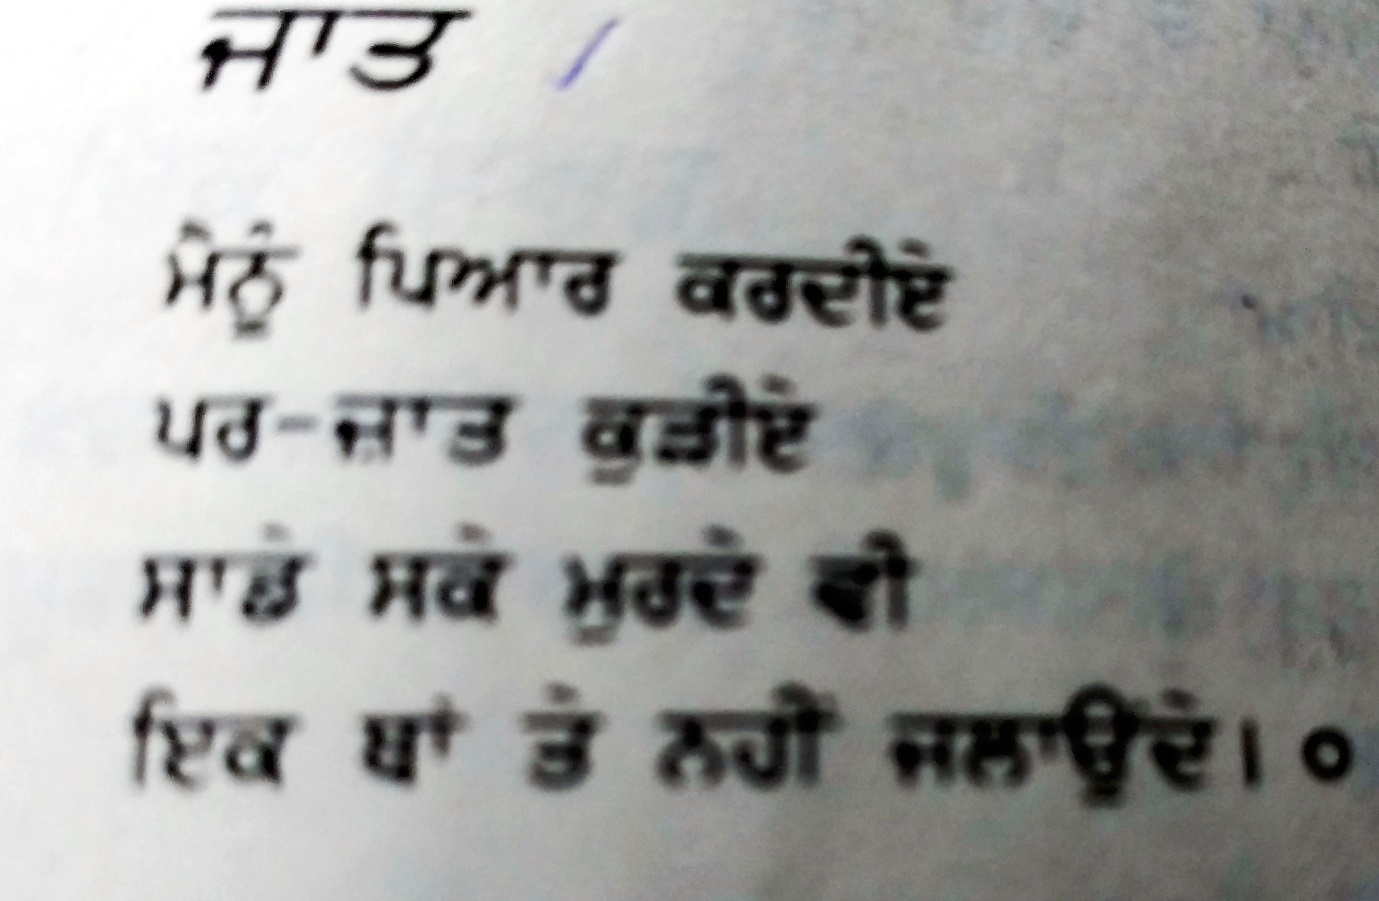 ਜਾਤ
ਮੈਨੂੰ ਪਿਆਰ ਕਰਦੀਏ
ਪਰ-ਜ਼ਾਤ ਕੁੜੀਏ
ਸਾਡੇ ਸਕੇ ਮੁਰਦੇ ਵੀ
ਇਕ ਥਾਂ ਤੇ ਨਹੀਂ ਜਲਾਉਂਦੇ। ੦